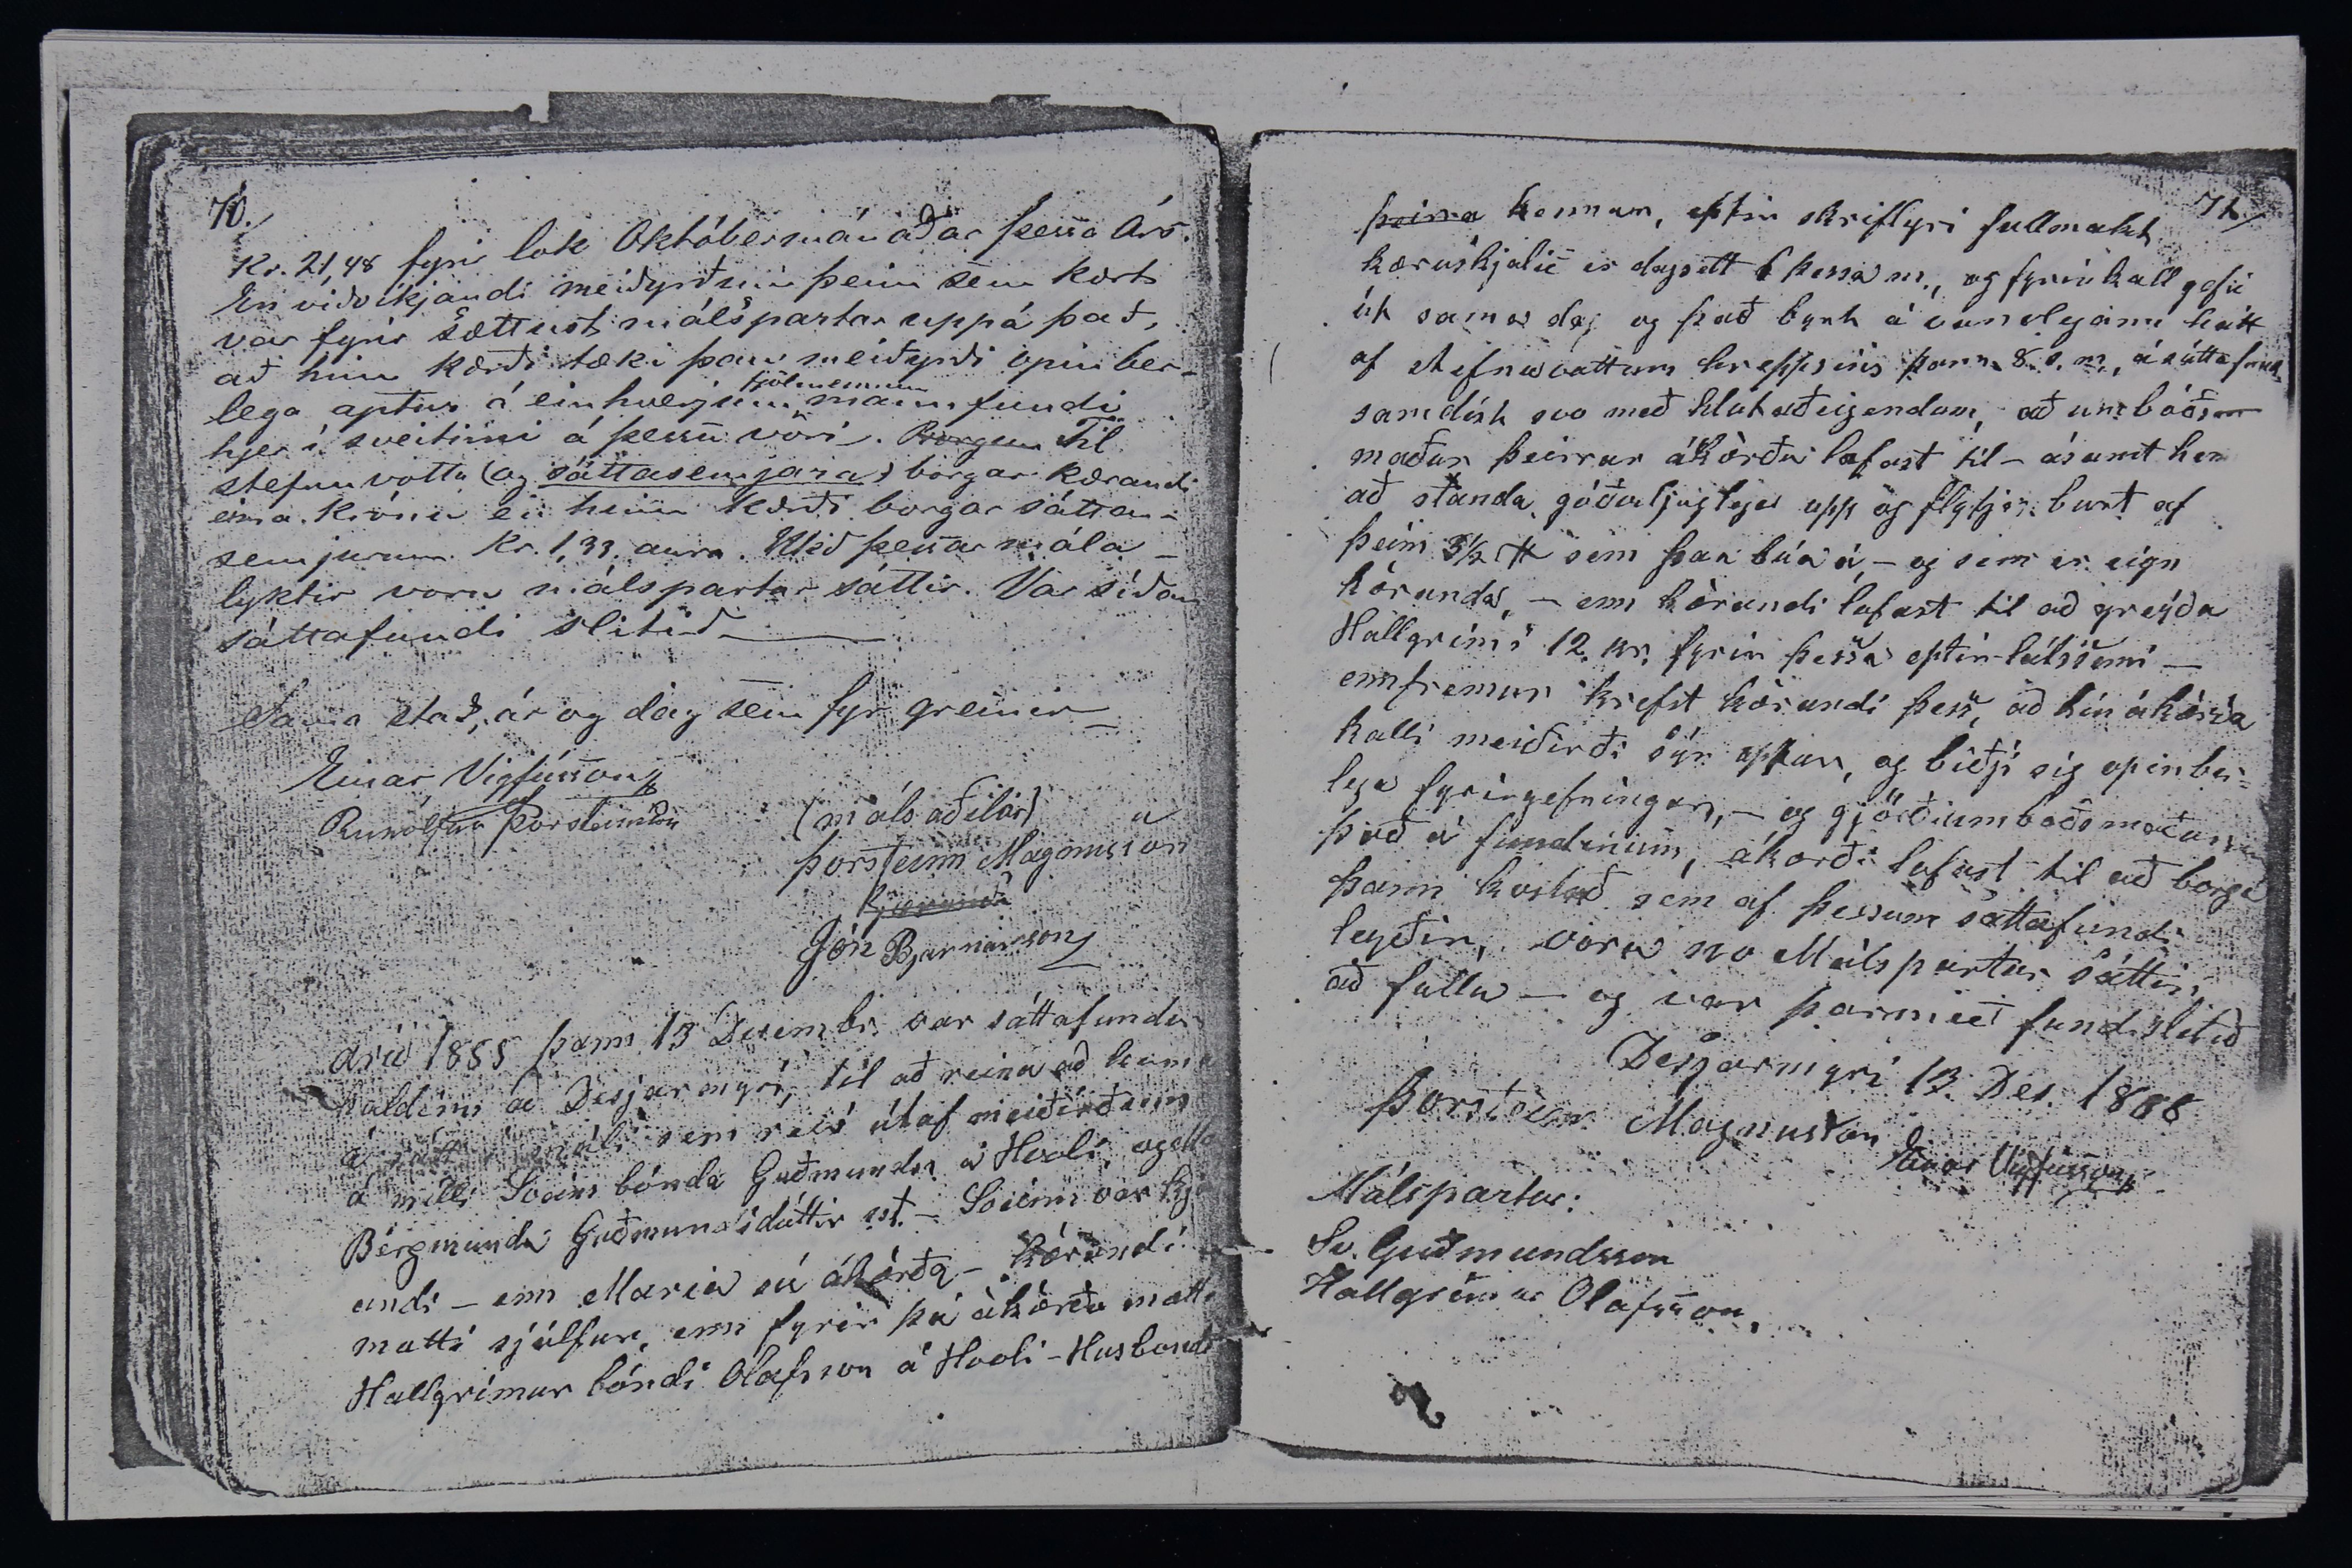 70.
Kr. 21,48 fyrir lok Októbermánaðar þessa Árs.
En viðvíkjandi meiðyrðum þeim sem kært
var fyrir sættust málspartar uppá það,
að hinn kærði tæki þau meiðyrði opinber-
lega aptur á einhverjum fjölmennum mannfundi
hjer í sveitinni á þessu vori. Borgun Til
stefnuvotta (og sáttasemjara) borgar kærandi
eina krónu en hinn kærði borgar sátta-
semjurum Kr. 1,33 aura. Með þessar mála-
lyktir voru málspartar sáttir. Var síðan
sáttafundi slitið
Sama stað, ár og dag sem fyr greinir
Einar Vigfússon
Runólfur Þorsteinsson
(málsaðilar)
Þorsteinn Magnusson
Jón Bjarnarson
árið 1888 þann 13 Desembr. var sáttafundur
haldinn að Desjarmyri, til að reina að koma
á sátt í máli sem reis útaf meiðirðum
á milli Sveins bónda Guðmunds. á Hvoli,
Bergmunda Guðmundsdóttir st. - Sveinn var kjær
andi - enn Maria sú ákærða - kærandi
mætti sjálfur, enn fyrir þá ákærðu mætti
Hallgrímur bóndi Olafsson á Hvoli - Husbondi
71
þeirra hennar, eptir skriflegri fullmakt
kæruskjalið er dagsett 6 þessa m., og fyrirkall gefið
út sama dag og það byrt á vanalegann hátt
af stefnuvottum hreppsins þann 8. s. m., á sáttafund
samdist svo með hlutaðeigendum, að umboðs
maður þeirrar ákærðu lofast til - ásamt henn
að standa góðuljuglega upp og flytja burt af
þeim 3½ # sem þau búa á - og sem er eign
kæranda, - enn kærandi lofast til að greyða
Hallgrími 12 kr. fyrir þessa eptir-látssemi -
ennfremur krefst kærandi þess, að hin ákærða
kalli meiðirði sýn aptur, og biðji sig opinber-
lega fyrirgefningar, - og gjörði umboðsmaður
það á fundinum, ákærði lofast til að borga
þann kostnað sem af þessum sáttafundi
leyðir, voru so Málspartar sáttir
að fullu - og var þarmeð fundi slitið
Desjarmyri 13. Des. 1888
Þorsteinn Magnusson
Einar Vigfússon
Málspartar:
Sv. Guðmundsson
Hallgrímur Olafsson.